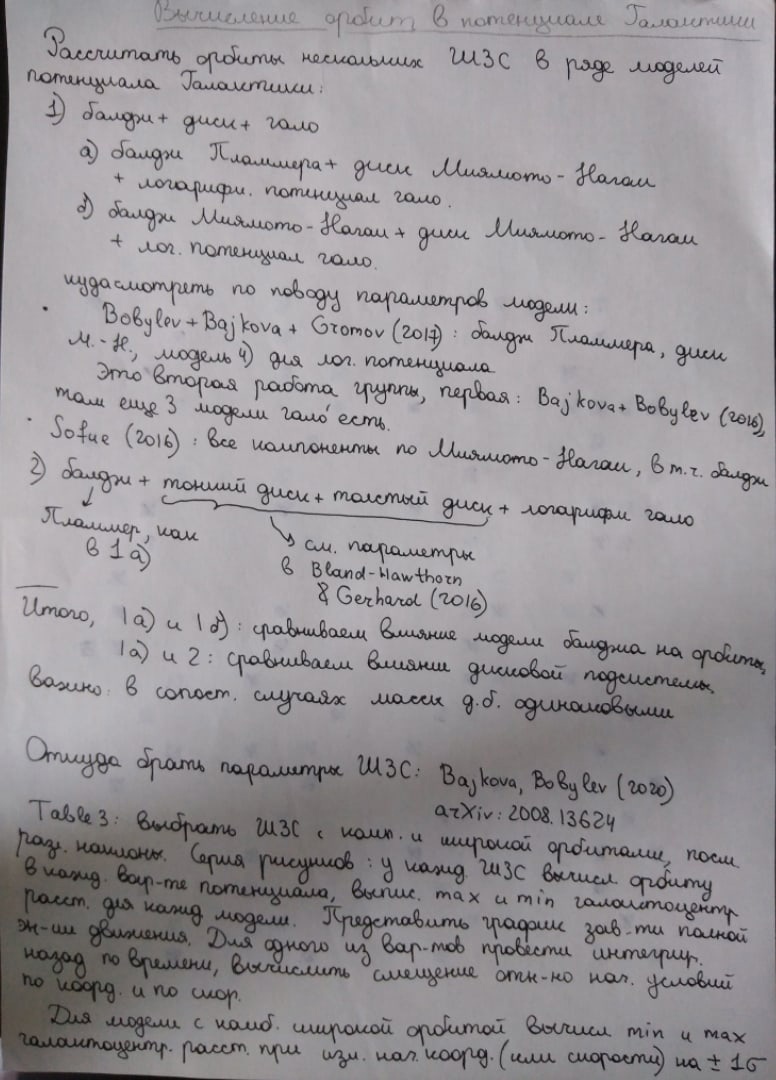 Вычисление орбит в потенциале Галактики
Рассчитать орбиты нескольких ШЗС в ряде моделей
потенциала Галактики:
1) балдж + диск + гало
а) балдж Пламмера + диск Миямото-Нагаи
+ логарифм. потенциал гало.
б) балдж Миямото-Нагаи + диск Миямото-Нагаи
+ лог. потенциал гало.
куда смотреть по поводу параметров модели:
· Bobylev + Bajkova + Gromov (2017): балдж Пламмера, диск
М.-Н., модель 4) для лог. потенциала
Это вторая работа группы, первая: Bajkova + Bobylev (2016),
там еще 3 модели гало есть.
· Sofue (2016): все компоненты по Миямото-Нагаи, в т.ч. балдж
2) балдж + тонкий диск + толстый диск + логарифм гало
Пламмер, как
в 1а)
см. параметры
в Bland-Hawthorn
& Gerhard (2016)
Итого, 1а) и 1б): сравниваем влияние модели балджа на орбиты,
1а) и 2: сравниваем влияние дисковой подсистемы.
Важно: в сопост. случаях массы д.б. одинаковыми
Откуда брать параметры ШЗС: Bajkova, Bobylev (2020)
arXiv: 2008.13624
Table 3: выбрать ШЗС с комп. и широкой орбитами, посм.
разн. наклоны. Серия рисунков: у кажд. ШЗС вычисл. орбиту
в кажд. вар-те потенциала, выпис. max и min галактоцентр.
расст. для кажд модели. Представить график зав-ти полной
эн-ии движения. Для одного из вар-тов провести интегрир.
назад по времени, вычислить смещение отн-но нач. условий
по коорд. и по скор.
Для модели с наиб. широкой орбитой вычисл min и max
галактоцентр. расст. при изм. нач. коорд. (или скорости) на ± 1σ